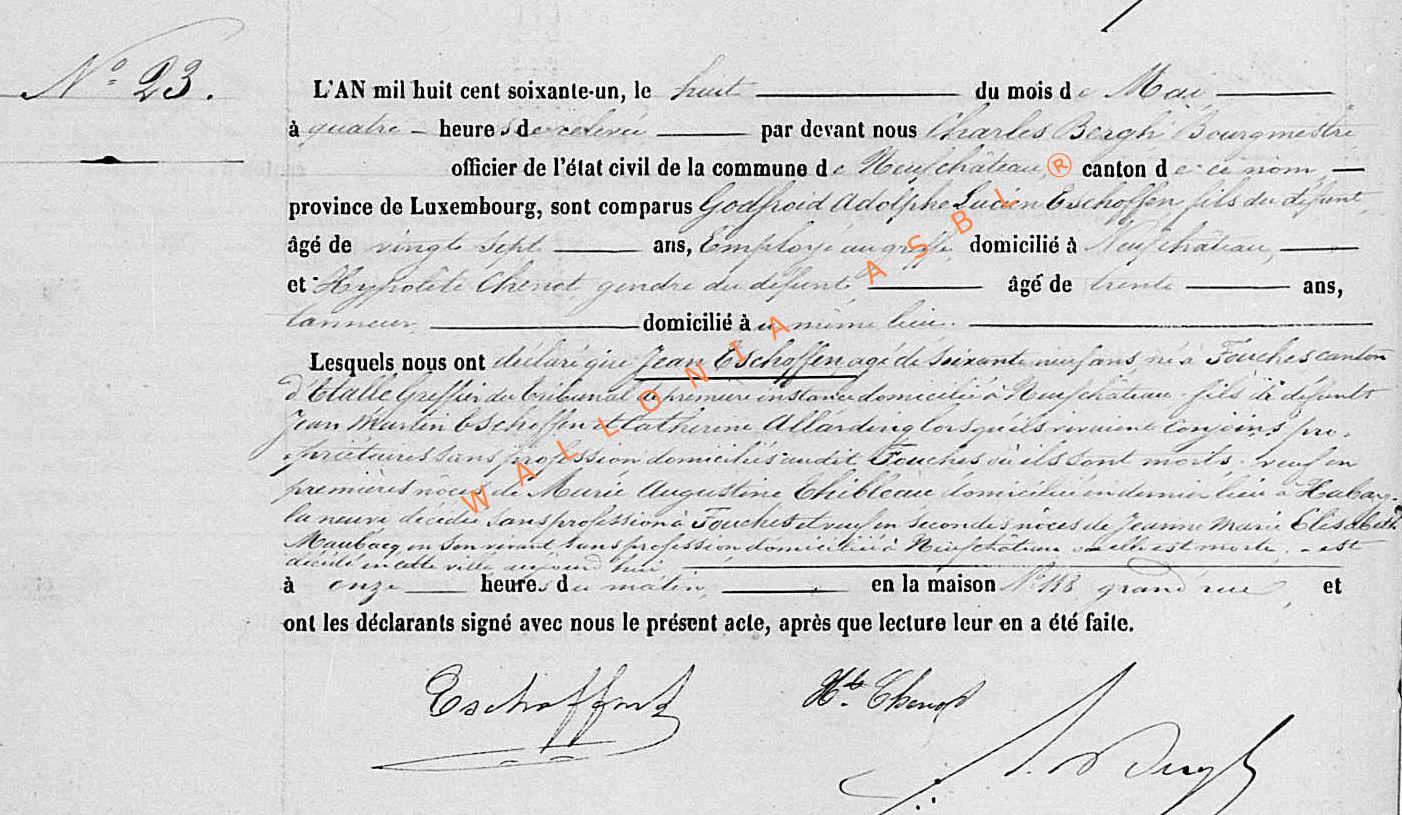 N° 23.
L'AN mil huit cent soixante-un, le huit du mois de Mai
à quatre heures de relevée par devant nous Charles Bergh Bourgmestre
officier de l'état civil de la commune de Neufchâteau, canton de ce nom,
province de Luxembourg, sont comparus Godfroid Adolphe Lucien Eschoffen, fils du défunt,
âgé de vingt sept ans, Employé au greffe, domicilié à Neufchâteau,
et Hypolite Chenot, gendre du défunt âgé de trente ans,
tanneur, domicilié à même lieu.
Lesquels nous ont déclaré que Jean Eschoffen, agé de soixante neuf ans, né à Fouches canton
d'Etalle Greffier du Tribunal de première instance domicilié à Neufchâteau fils de défunts
Jean Martin Eschoffen et Catherine Allarding lorsqu'ils vivaient conjoints pro-
priétaires sans profession domiciliés audit Fouches où ils sont morts. veuf en
premières nôces de Marie Augustine Thibleau domiciliée en dernier lieu à Habay-
la neuve décédée sans profession à Fouches et veuf en secondes nôces de Jeanne Marie Elisabeth
Maubacq en son vivant sans profession domiciliée à Neufchâteau où elle est morte. - est
décédé en cette ville aujourd'hui
à onze heures du matin, en la maison N° 118 grand rue, et
ont les déclarants signé avec nous le présent acte, après que lecture leur en a été faite.
Eschoffen
Hte Chenot
WALLONIA ASBL ®